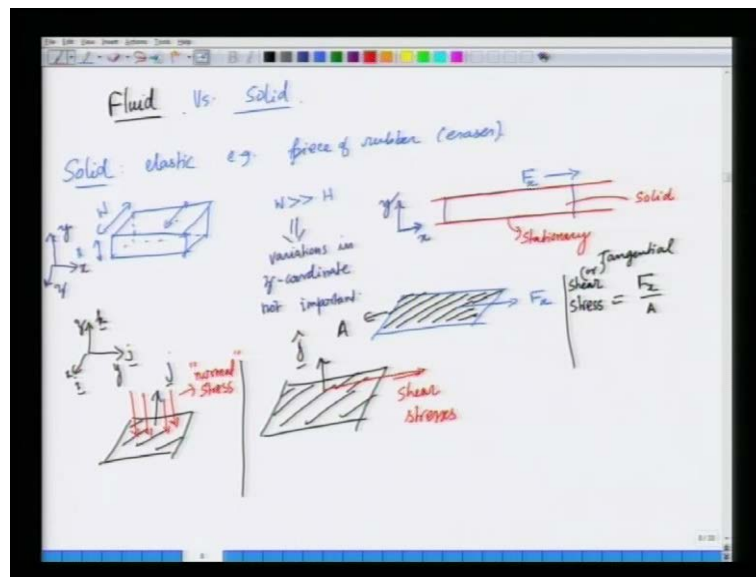 File Edit View Insert Actions Tools Help
Fluid Vs. Solid.
Solid: elastic e.g. piece of rubber (eraser)
W
y
x
z
W >> H
variations in
z-coordinate
not important.
y
x
Fx
Solid
Stationary
A
Fx
shear (or) Tangential
stress = Fx / A
y
j
"normal"
stress
ĵ
Shear
stresses